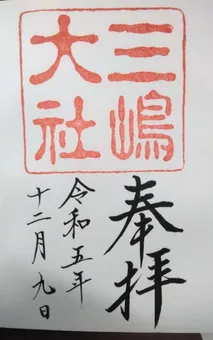 三嶋
大社
奉拝
令和五年
十二月九日